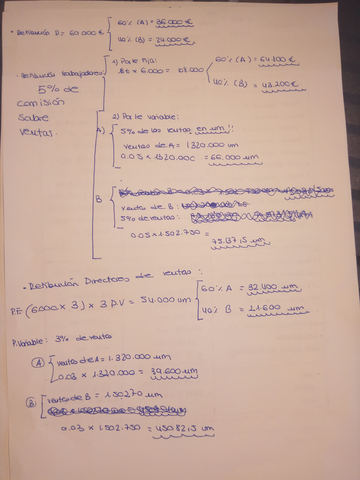 • Retribución D = 60.000 €
60% (A) = 36.000 €
40% (B) = 24.000 €
• Retribución trabajadores
5% de
comisión
sobre
ventas.
1) Parte fija:
x 6.000 =
60% (A) = 64.800 €
40% (B) = 43.200 €
A)
2) Parte variable:
5% de las ventas en um
ventas de A = 1320.000 um
0.05 x 1320.000 = 66.000 um
B
ventas de B:
5% de ventas:
0.05 x 1.502.750 =
75.137,5 um
• Retribución Directores de ventas:
P.F (6000 x 3) x 3 P.V = 54.000 um
60% A = 32.400 um
40% B = 21.600 um
P.Variable: 3% de ventas
A
ventas de A = 1.320.000 um
0.03 x 1.320.000 = 39.600 um
B
ventas de B = 150270 um
0.03 x 1.502.750 = 45082,5 um